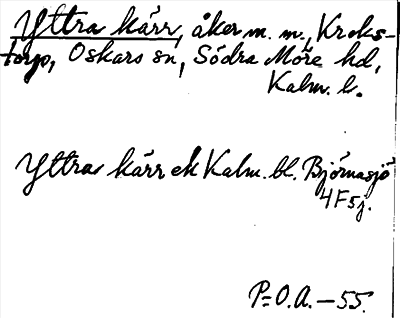 Yttra kärr, åker m. m., Kroks-
torp, Oskars sn, Södra Möre hd,
Kalm. l.
Yttra kärr ek Kalm. bl. Björnasjö
4F5j.
P=O.A.—55.